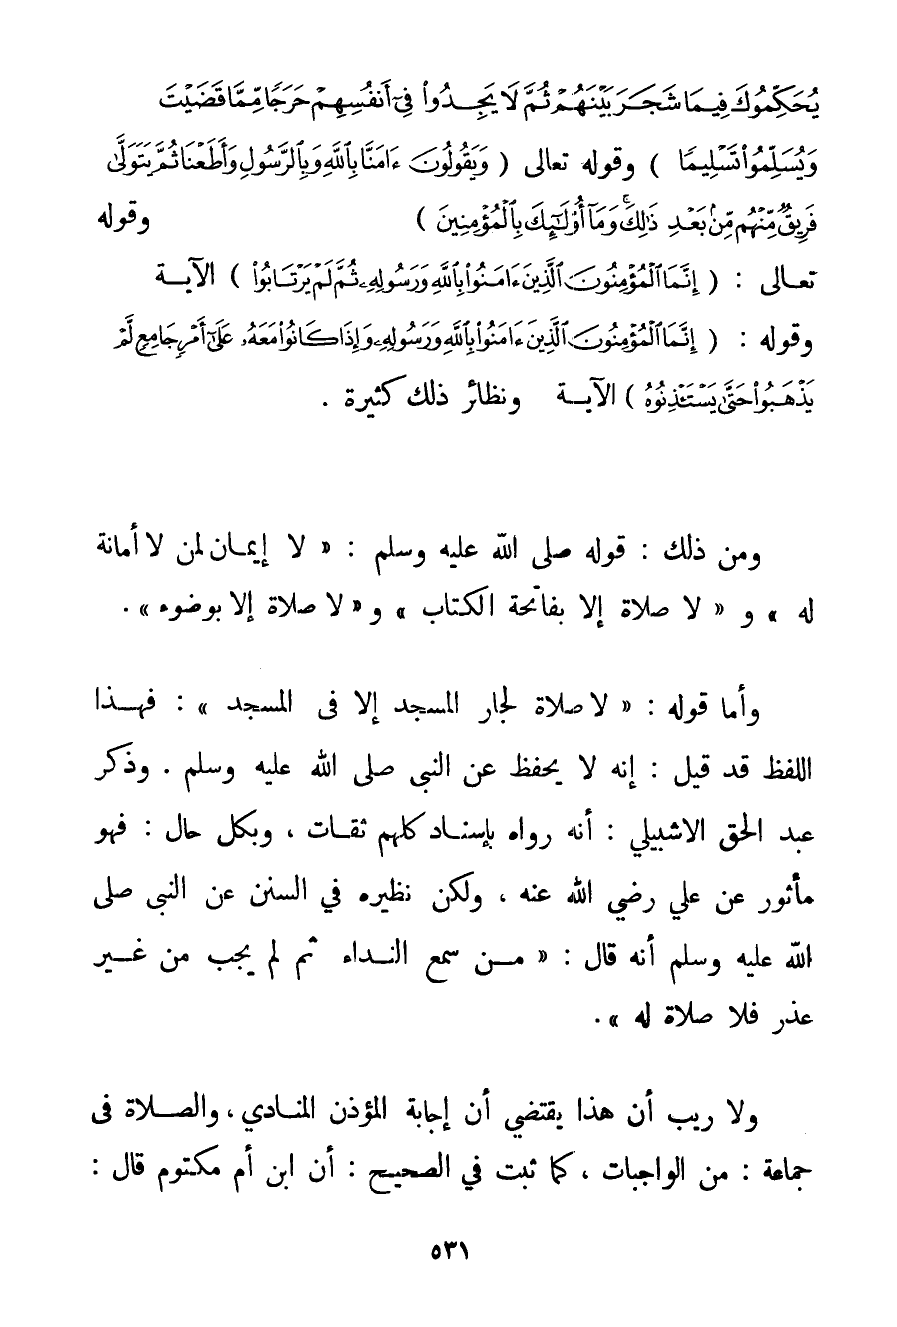 يُحَكِّمُوكَ فِيمَا شَجَرَ بَيْنَهُمْ ثُمَّ لَا يَجِدُوا فِي أَنفُسِهِمْ حَرَجًا مِّمَّا قَضَيْتَ
وَيُسَلِّمُوا تَسْلِيمًا ) وقوله تعالى ( وَيَقُولُونَ ءَامَنَّا بِاللَّهِ وَبِالرَّسُولِ وَأَطَعْنَا ثُمَّ يَتَوَلَّى
فَرِيقٌ مِّنْهُم مِّنۢ بَعْدِ ذَٰلِكَ ۚ وَمَا أُوْلَٰٓئِكَ بِالْمُؤْمِنِينَ ) وقوله
تعالى : ( إِنَّمَا الْمُؤْمِنُونَ الَّذِينَ ءَامَنُوا بِاللَّهِ وَرَسُولِهِ ثُمَّ لَمْ يَرْتَابُوا ) الآية
وقوله : ( إِنَّمَا الْمُؤْمِنُونَ الَّذِينَ ءَامَنُوا بِاللَّهِ وَرَسُولِهِ وَإِذَا كَانُوا مَعَهُ عَلَىٰٓ أَمْرٍ جَامِعٍ لَّمْ
يَذْهَبُوا حَتَّىٰ يَسْتَـْٔذِنُوهُ ) الآية ونظائر ذلك كثيرة .
ومن ذلك : قوله صلى الله عليه وسلم : « لا إيمان لمن لا أمانة
له » و « لا صلاة إلا بفاتحة الكتاب » و « لا صلاة إلا بوضوء » .
وأما قوله : « لا صلاة لجار المسجد إلا فى المسجد » : فهذا
اللفظ قد قيل : إنه لا يحفظ عن النبى صلى الله عليه وسلم . وذكر
عبد الحق الاشبيلي : أنه رواه بإسناد كلهم ثقات ، وبكل حال : فهو
مأثور عن علي رضي الله عنه ، ولكن نظيره في السنن عن النبى صلى
الله عليه وسلم أنه قال : « من سمع النداء ثم لم يجب من غير
عذر فلا صلاة له » .
ولا ريب أن هذا يقتضي أن إجابة المؤذن المنادي ، والصلاة فى
جماعة : من الواجبات ، كما ثبت في الصحيح : أن ابن أم مكتوم قال :
٥٣١